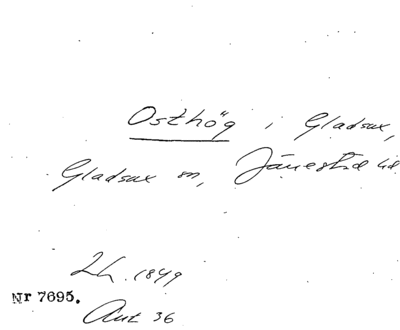 Osthög i Gladsax,
Gladsax sn, Järrestad hd
Lh. 1849
Nr 7695.
Ant 36